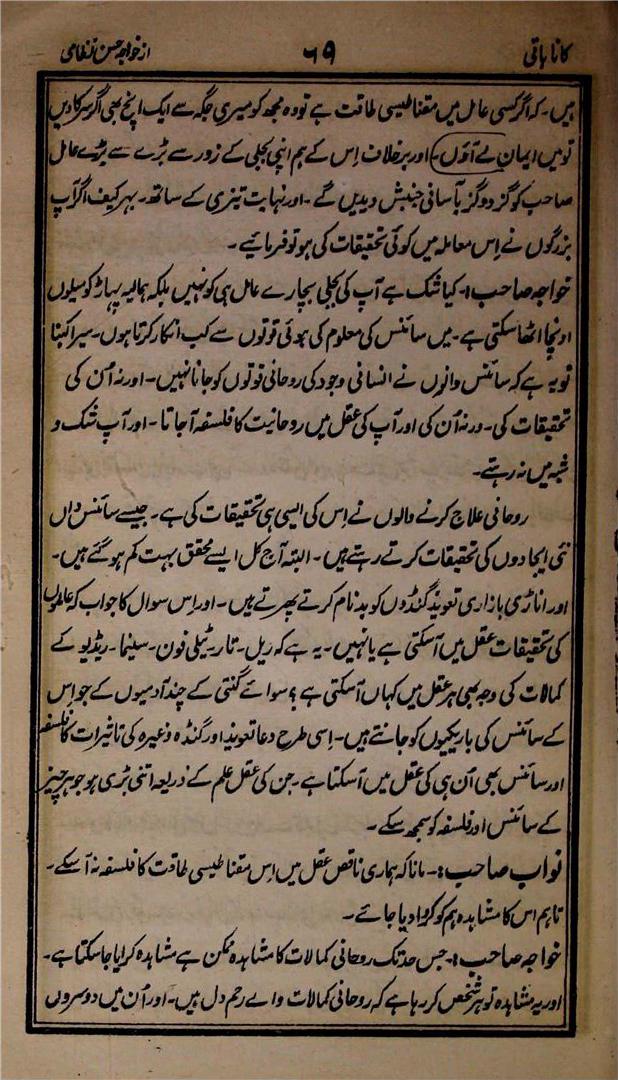 کانا باتی
۶۹
از خواجہ حسن نظامی
ہیں۔ کہ اگر کسی عامل میں مقناطیسی طاقت ہے تو وہ مجھ کو میری جگہ سے ایک اِنچ بھی اگر سرکا دیں
تو میں ایمان لے آؤں۔ اور برخلاف اِس کے ہم اپنی بجلی کے زور سے بڑے سے بڑے عامل
صاحب کو گز دو گز بآسانی جنبش دیدیں گے۔ اور نہایت تیزی کے ساتھ۔ بہر کیف اگر آپ
بزرگوں نے اِس معاملہ میں کوئی تحقیقات کی ہو تو فرمائیے۔
خواجہ صاحب:۔ کیا شک ہے آپ کی بجلی بیچارے عامل ہی کو نہیں بلکہ ہمالیہ پہاڑ کو میلوں
اونچا اٹھا سکتی ہے۔ میں سائنس کی معلوم کی ہوئی قوتوں سے کب انکار کرتا ہوں۔ میرا کہنا
تو یہ ہے کہ سائنس والوں نے انسانی وجود کی روحانی قوتوں کو جانا نہیں۔ اور نہ اُن کی
تحقیقات کی۔ ورنہ اُن کی اور آپ کی عقل میں روحانیت کا فلسفہ آ جاتا۔ اور آپ شک و
شبہ میں نہ رہتے۔
روحانی علاج کرنے والوں نے اِس کی ایسی ہی تحقیقات کی ہے۔ جیسے سائنس داں
نئی ایجادوں کی تحقیقات کرتے رہتے ہیں۔ البتہ آج کل ایسے محقق بہت کم ہو گئے ہیں۔
اور اناڑی بازاری تعویذ گنڈوں کو بدنام کرتے پھرتے ہیں۔ اور اِس سوال کا جواب کہ عاملوں
کی تحقیقات عقل میں آ سکتی ہے یا نہیں۔ یہ ہے کہ ریل۔ تار۔ ٹیلی فون۔ سینما۔ ریڈیو کے
کمالات کی وجہ بھی ہر عقل میں کہاں آ سکتی ہے؟ سوائے گنتی کے چند آدمیوں کے جو اِس
کے سائنس کی باریکیوں کو جانتے ہیں۔ اِسی طرح دعا تعویذ اور گنڈہ وغیرہ کی تاثیرات کا فلسفہ
اور سائنس بھی اُن ہی کی عقل میں آ سکتا ہے۔ جن کی عقل علم کے ذریعہ اتنی بڑی ہو جو ہر چیز
کے سائنس اور فلسفہ کو سمجھ سکے۔
نواب صاحب:۔ مانا کہ ہماری ناقص عقل میں اِس مقناطیسی طاقت کا فلسفہ نہ آ سکے۔
تاہم اس کا مشاہدہ ہم کو کروا دیا جائے۔
خواجہ صاحب:۔ جس حد تک روحانی کمالات کا مشاہدہ ممکن ہے مشاہدہ کرایا جا سکتا ہے۔
اور یہ مشاہدہ تو ہر شخص کر رہا ہے کہ روحانی کمالات والے رحم دل ہیں۔ اور اُن میں دوسروں